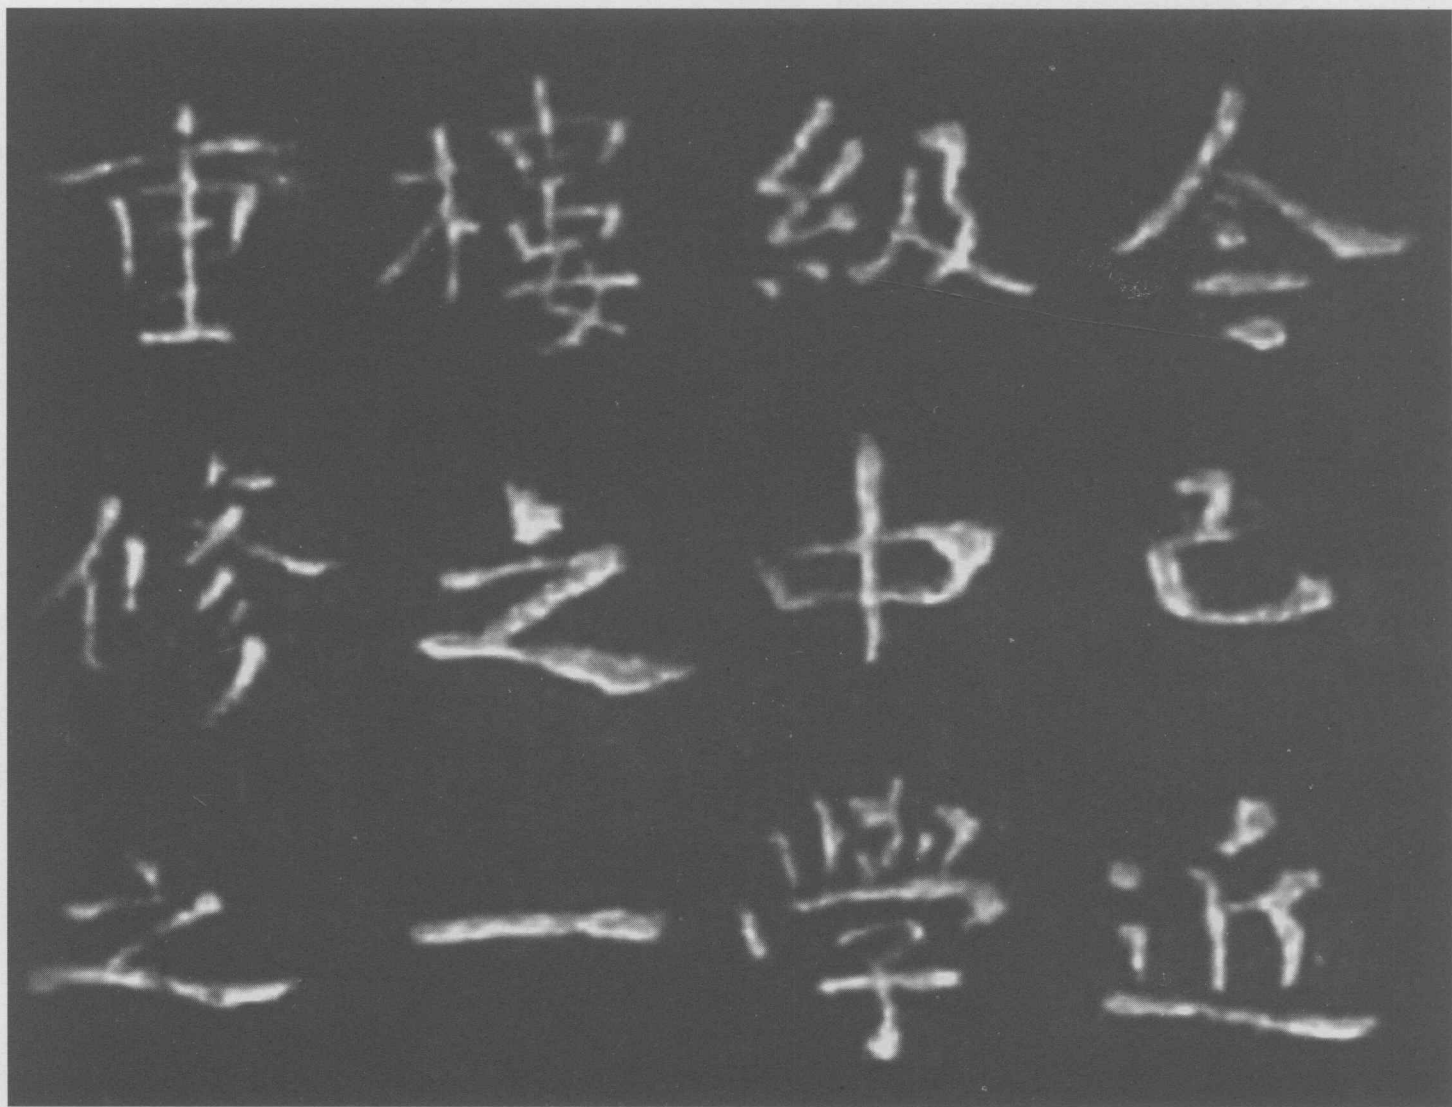 今已近
級中學
樓之一
重修之